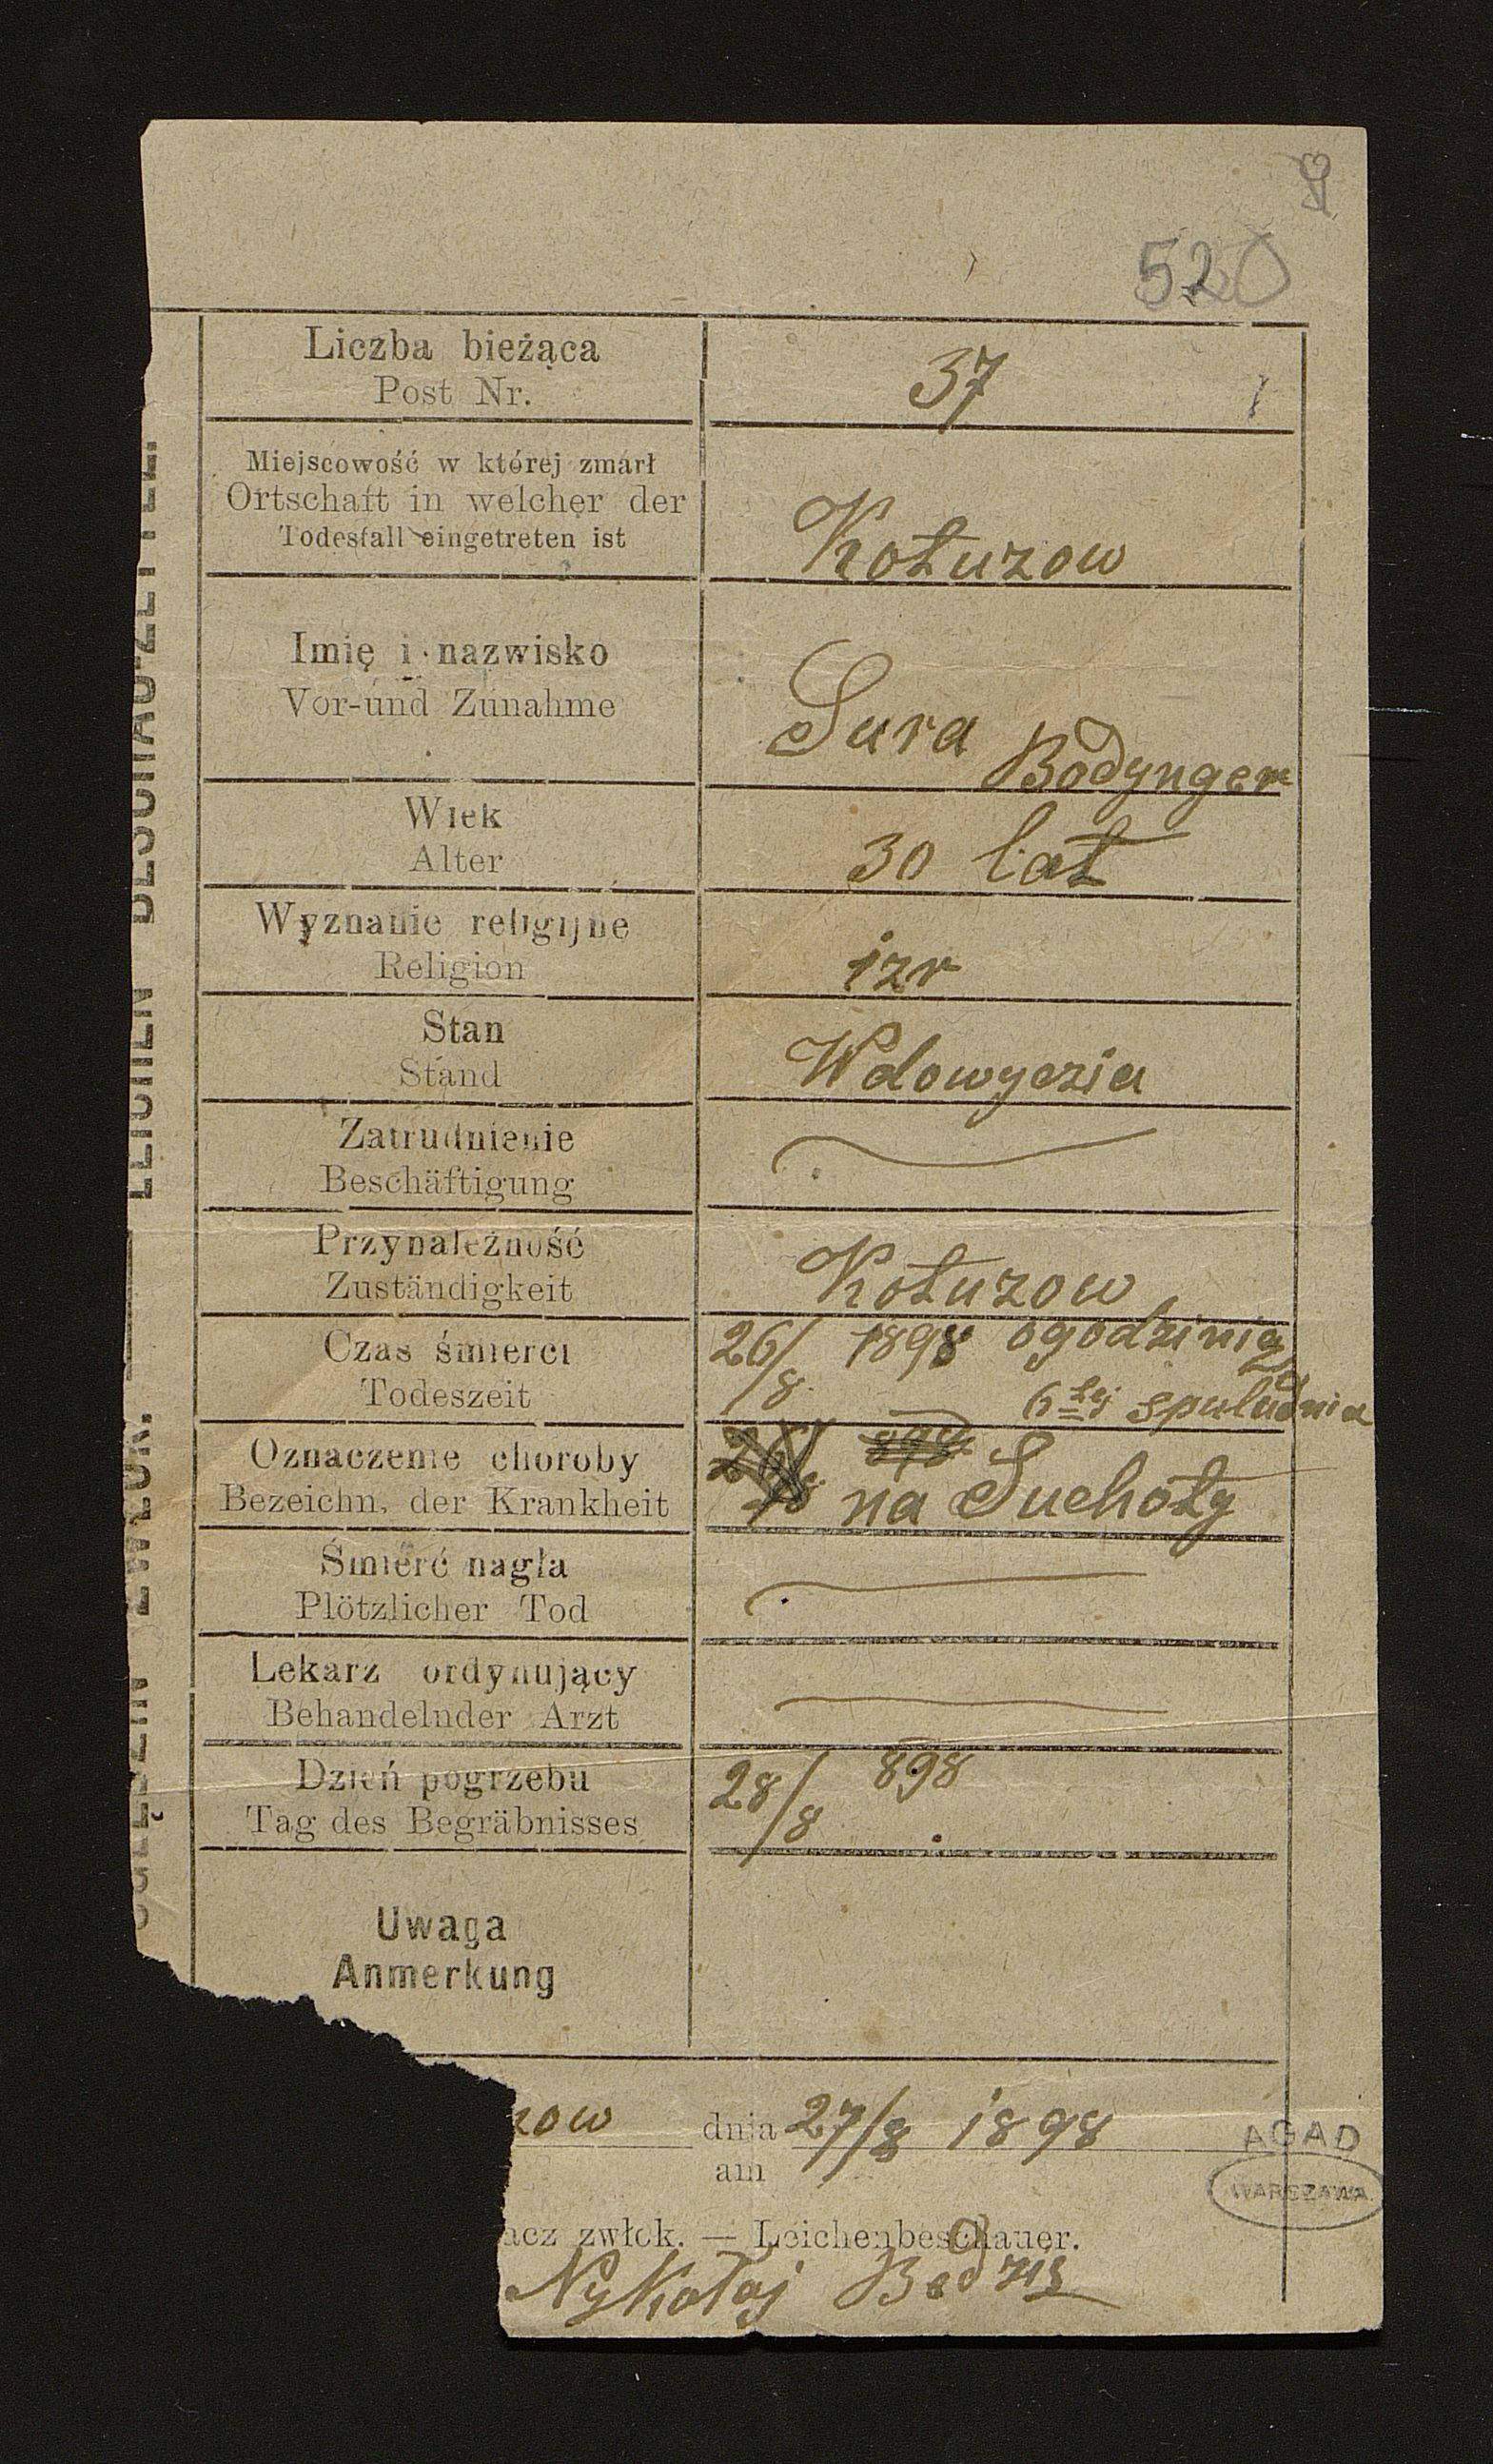 520
Liczba bieżąca
Post Nr.
37
Miejscowość w której zmarł
Ortschaft in welcher der
Todesfall eingetreten ist
Kotuzow
Imię i nazwisko
Vor-und Zunahme
Sura Bodynger
Wiek
Alter
30 lat
Wyznanie religijne
Religion
izr
Stan
Stand
Wdowyczia
Zatrudnienie
Beschäftigung
Przynależność
Zuständigkeit
Kotuzow
Czas śmierci
Todeszeit
26/8 1898 ogodzinie
6tej spuludnia
Oznaczenie choroby
Bezeichn. der Krankheit
na Suchoty
Śmierć nagła
Plötzlicher Tod
Lekarz ordynujący
Behandelnder Arzt
Dzień pogrzebu
Tag des Begräbnisses
28/8 898
Uwaga
Anmerkung
zow dnia 27/8 1898
am
acz zwłok. — Leichenbeschauer.
Nykołaj
AGAD
WARSZAWA
OGLĘDZIN ZWŁOK. LEICHEN BESCHAU-ZETTEL.